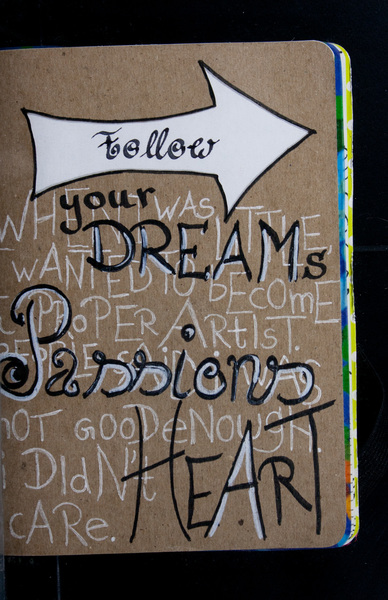 Follow
your
DREAMs
Passions
HEART
WHEN I WAS LITTLE,
WANTED TO bECOmE
PRoPER ARTIST.
PEOPLE SAID I WAS
NOT GOOD eNOUGH.
I DIdN't
cARe.